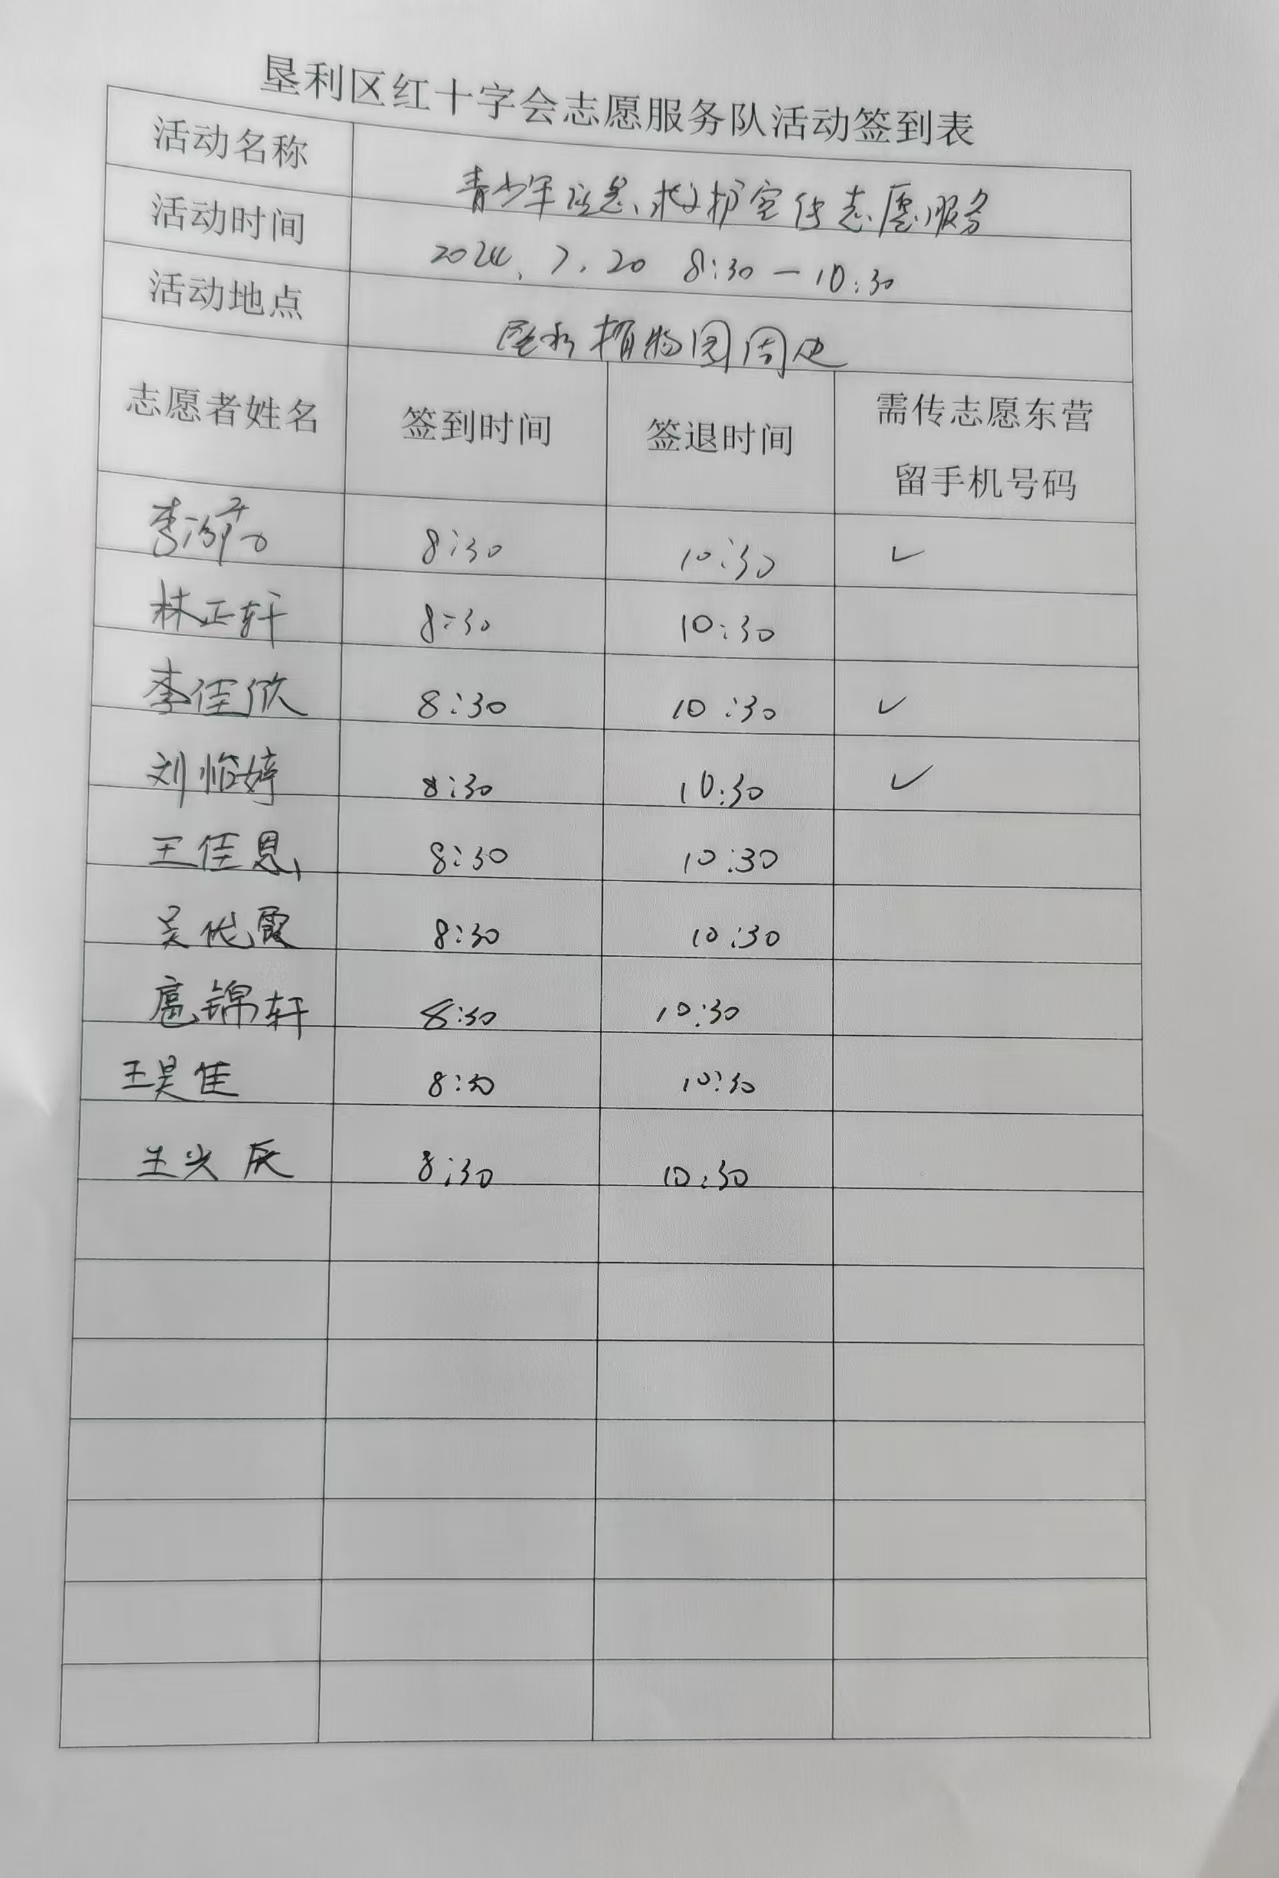 垦利区红十字会志愿服务队活动签到表
活动名称 青少年应急救护宣传志愿服务
活动时间 2024.7.20 8:30—10:30
活动地点 垦利植物园周边
志愿者姓名 签到时间 签退时间 需传志愿东营
留手机号码
李 8:30 10:30 ✓
林正轩 8:30 10:30
李佳欣 8:30 10:30 ✓
刘怡婷 8:30 10:30 ✓
王佳恩 8:30 10:30
吴优霞 8:30 10:30
扈锦轩 8:30 10:30
王昊佳 8:30 10:30
王兴辰 8:30 10:30